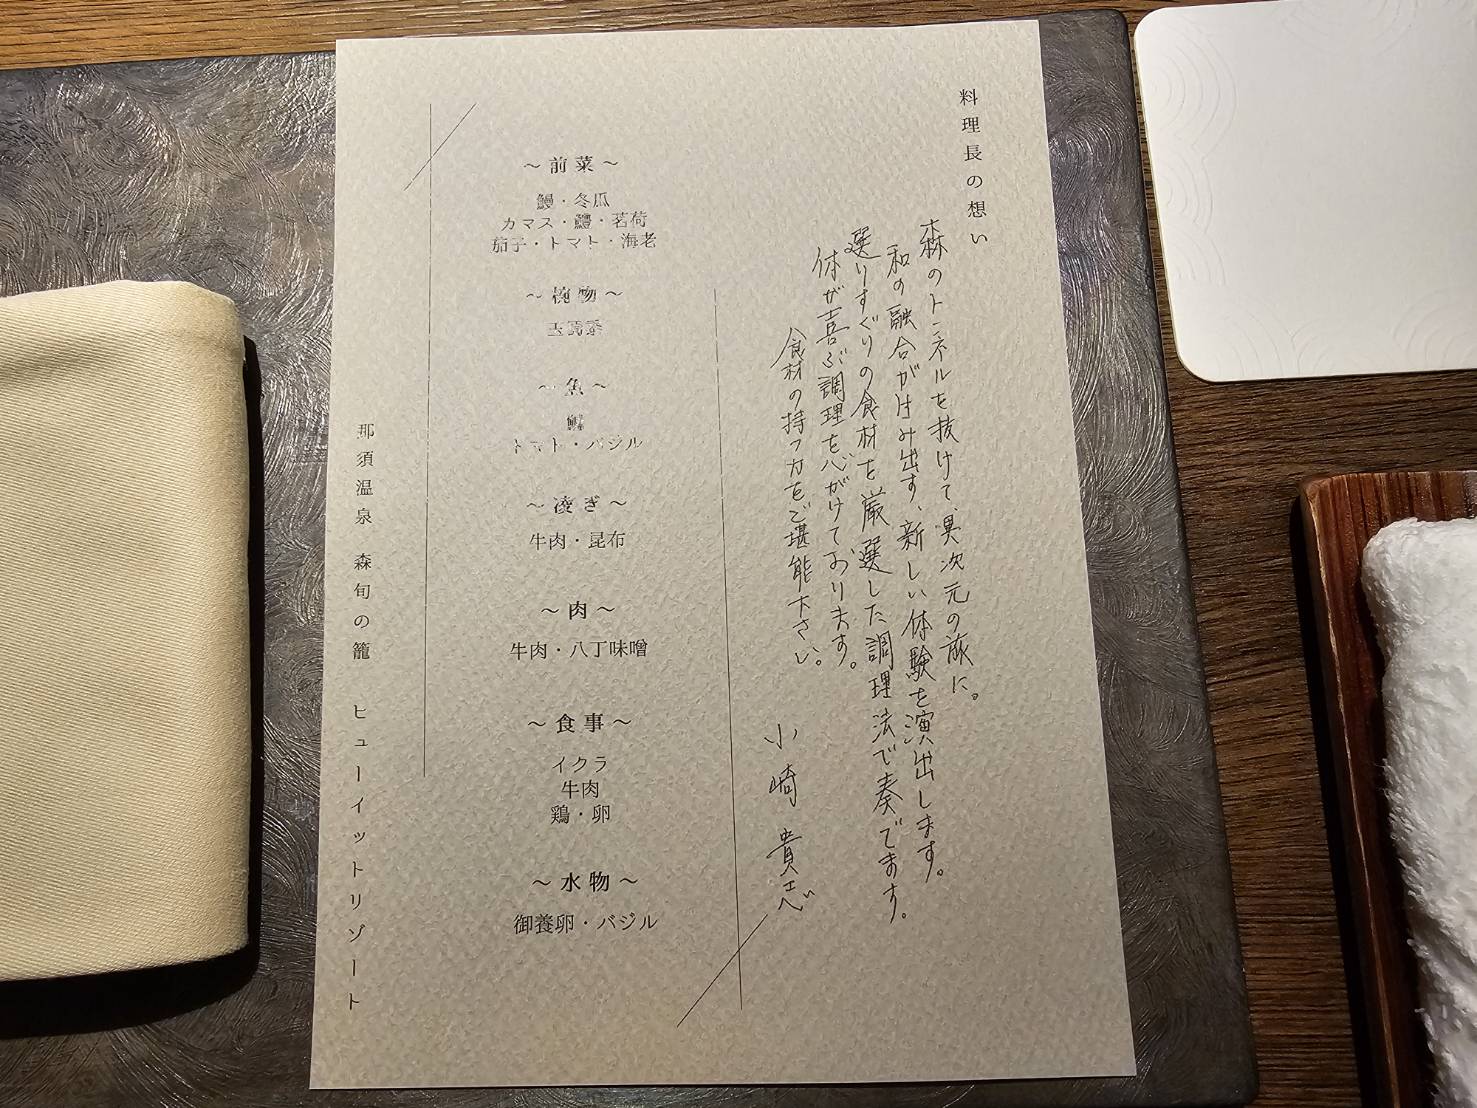 料理長の想い
森のトンネルを抜けて、異次元の旅に。
和の融合が生み出す、新しい体験を演出します。
選りすぐりの食材を厳選した調理法で奏でます。
体が喜ぶ調理を心がけております。
食材の持つ力をご堪能下さい。
小崎 貴志
～前菜～
鰻・冬瓜
カマス・鱧・茗荷
茄子・トマト・海老
～椀物～
玉蜀黍
～魚～
トマト・バジル
～凌ぎ～
牛肉・昆布
～肉～
牛肉・八丁味噌
～食事～
イクラ
牛肉
鶏・卵
～水物～
御養卵・バジル
那須温泉 森旬の籠 ヒューイットリゾート